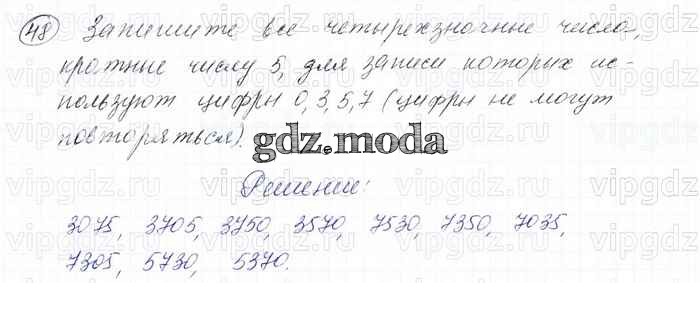 48 Запишите все четырехзначные числа,
кратные числу 5, для записи которых ис-
пользуют цифры 0, 3, 5, 7 (цифры не могут
повторяться).
gdz.moda
Решение:
3075, 3705, 3750, 3570, 7530, 7350, 7035,
7305, 5730, 5370.
vipgdz.ru